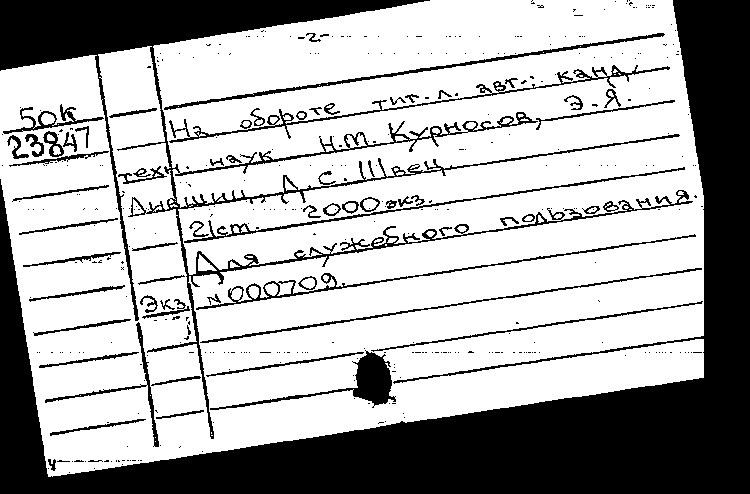 -2-
50К
23847
На обороте тит.л. авт.: канд.
техн. наук Н.М. Курносов, Э.Я.
Лившиц, Д.С. Швец.
21ст. 2000 экз.
Для служебного пользования.
Экз. №000709.